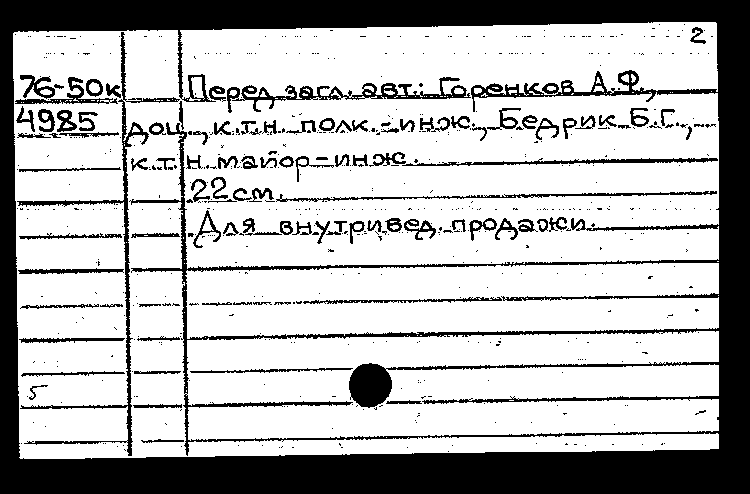 2
76-50к Перед загл. авт.: Горенков А.Ф.,
4985 доц., к.т.н. полк.-инж., Бедрик Б.Г.,
к.т.н. майор-инж.
22 см.
Для внутривед. продажи.
5